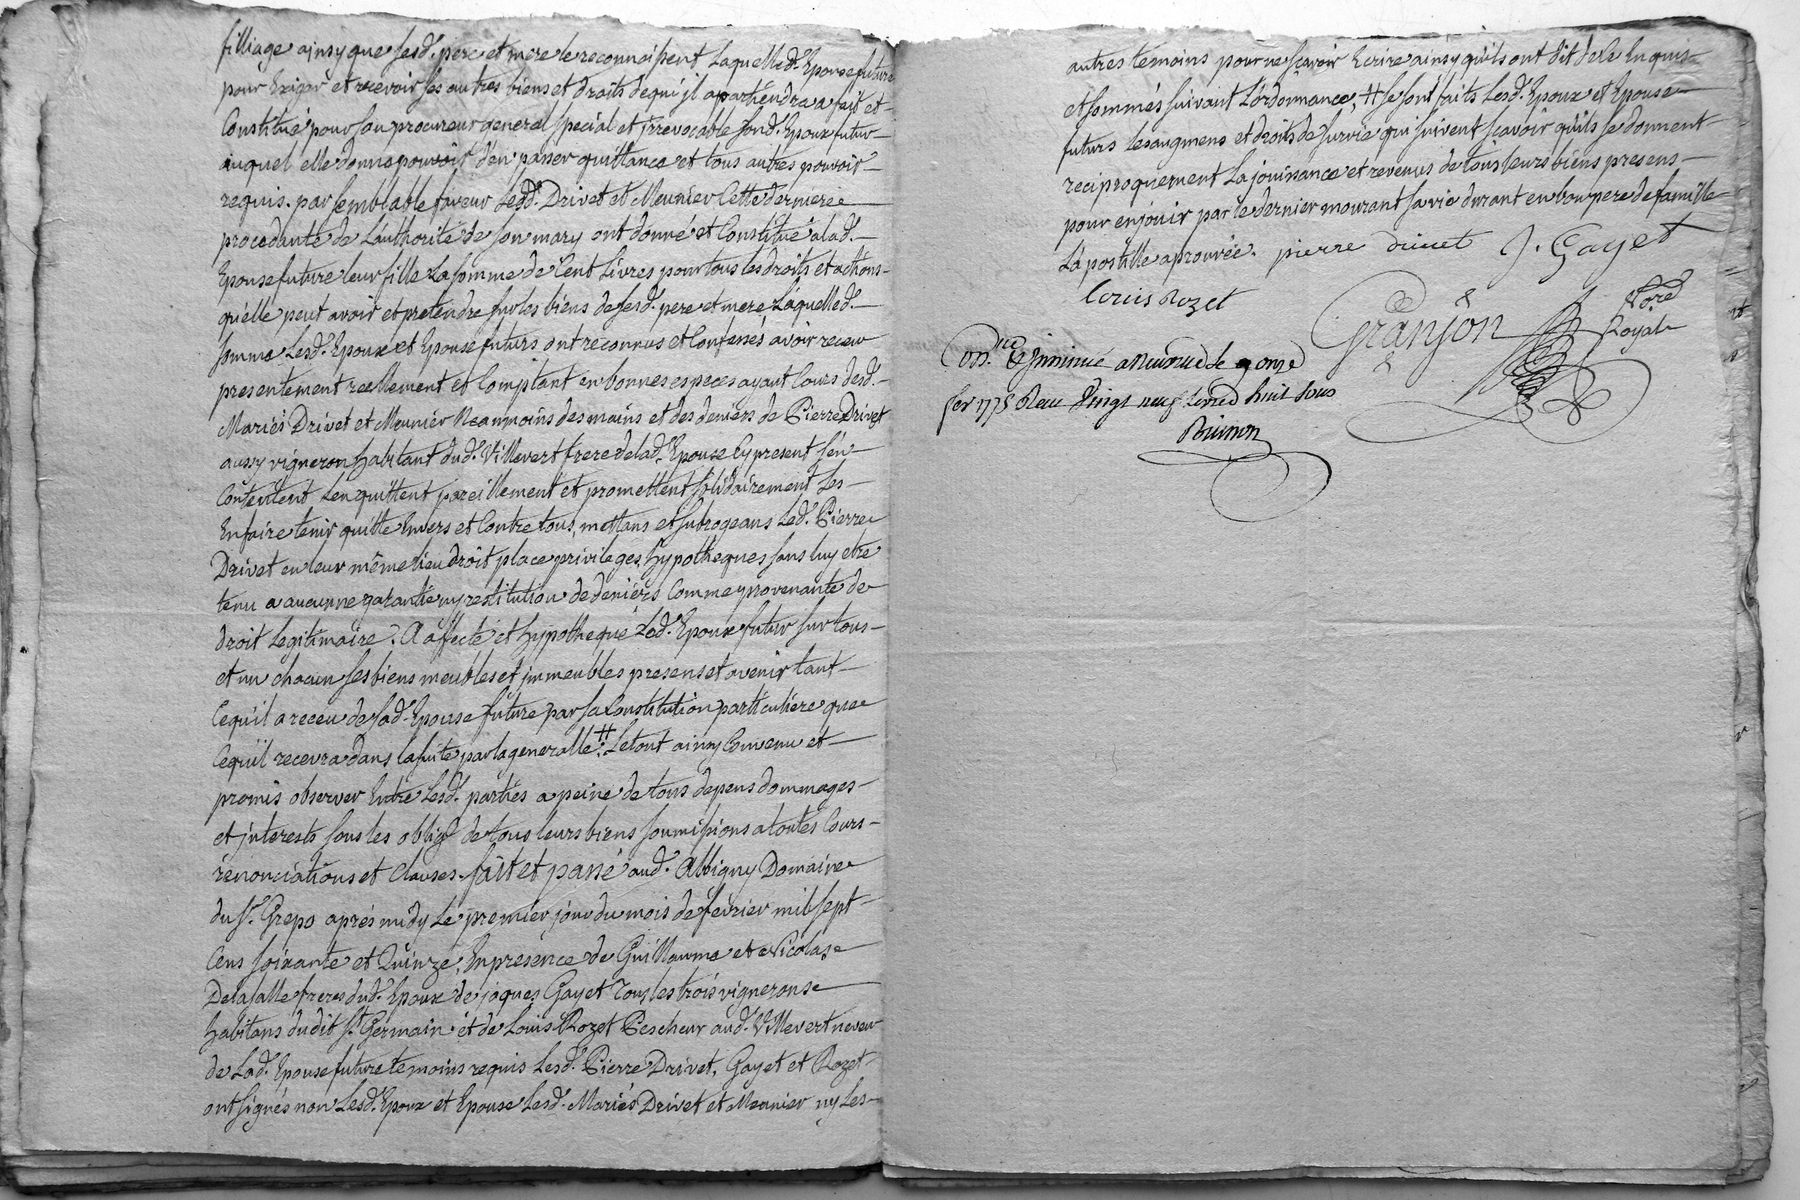 filliage ainsy que lesd. pere et mere le reconnoissent Laquelle d. Epouse future
pour Exiger et recevoir ses autres biens et droits de qui jl apartiendra a fait et
Constitué pour son procureur general special et jrrevocable sond. Epoux futur
auquel elle donne pouvoir d'en passer quittance et tous autres pouvoir
requis. par semblable faveur Lesd. Drivet et Meunier Cette derniere
procedante de L'authorité de son mary ont donné et Constitué a lad.
Epouse future leur fille La somme de Cent Livres pour tous les droits et actions
qu'elle peut avoir et pretendre sur les biens de sesd. pere et mere Laquelle d.
somme Lesd. Epoux et Epouse futurs ont reconnus et Confessés avoir receu
presentement reellement et Comptant en bonnes especes ayant Cours desd.
Mariés Drivet et Meunier Neanmoins des mains et des deniers de Pierre Drivet
aussy vigneron habitant dud. Villevert frere de lad. Epouse Cy present s'en
Contentent L'en quittent pareillement et promettent solidairement Les
En faire tenir quitte Envers et Contre tous, mettans et subrogeans Led. Pierre
Drivet en leur même lieu droit place privileges hypotheques sans luy etre
tenu a aucunne garantie ny restitution de deniers Comme provenante de
droit legitimaire. A affecté et hypothequé Led. Epoux futur sur tous
et un chacun ses biens meubles et jmmeubles presens et avenir tant
Ce qu'il a receu de sad. Epouse future par sa Constitution particuliere que
Ce qu'il recevra dans la suite par la generalle. # Le tout ainsy Convenu et
promis observer Entre Lesd. parties a peine de tous depens dommages
et jnterests sous les oblig. de tous leurs biens soumissions a toutes Cours
renonciations et Clauses. fait et passé aud. Albigny Domaine
du Sr. Grepo aprés midy Le premier jour du mois de fevrier mil sept
Cens soixante et Quinze, En presence de Guillaume et Nicolas
Delasalle freres dud. Epoux de jaques Gayet Tous les trois vignerons
habitans dudit St. Germain et de Louis Rozet Pescheur aud. Villevert neveu
de Lad. Epouse future temoins requis Lesd. Pierre Drivet, Gayet et Rozet
ont signés non Lesd. Epoux et Epouse Lesd. Mariés Drivet et Meunier ny Les
autres temoins pour ne sçavoir Ecrire ainsy qu'ils ont dit de ce Enquis
et sommés suivant L'ordonnance, # se sont faits Lesd. Epoux et Epouse
futurs les augmens et droits de survie qui suivent sçavoir qu'ils se donnent
reciproquement La jouissance et revenus de tous leurs biens presens
pour en jouir par le dernier mourant sa vie durant en bon pere de famille
La postille aprouvée. pierre drivet J. Gayet
louis rozet
Granjon Nore Royal
a neuville le onze
fer 1775 Recu Vingt neuf livres huit sous